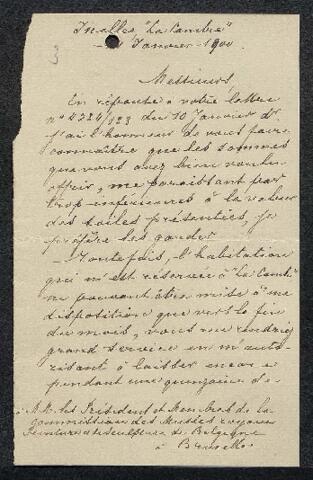 Ixelles "La Cambre"
Janvier 1900
3
Messieurs,
En réponse à votre lettre
n° 4228/123 du 10 Janvier dr
j'ai l'honneur de vous faire
connaître que les sommes
que vous avez bien voulu
offrir, me paraissant par
trop inférieures à la valeur
des toiles présentées, je
préfère les garder.
Toutefois, l'habitation
qui m'est réservée à "La Cambre"
ne pouvant être mise à ma
disposition que vers la fin
du mois, vous me rendriez
grand service en m'auto-
risant à laisser encore
pendant une quinzaine de
à M.M. les Président et Membres de la
Commission des Musées royaux
Peinture et de sculpture de Belgique
à Bruxelles